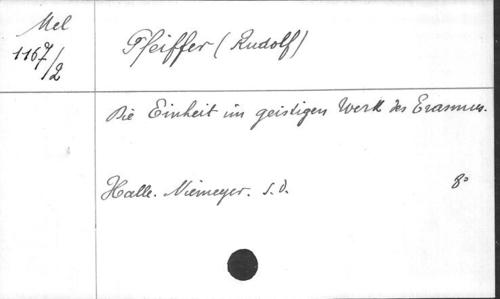 Mel
1167/2
Pfeiffer (Rudolf)
Die Einheit im geistigen Werk des Erasmus.
Halle. Niemeyer. s.d.
8°